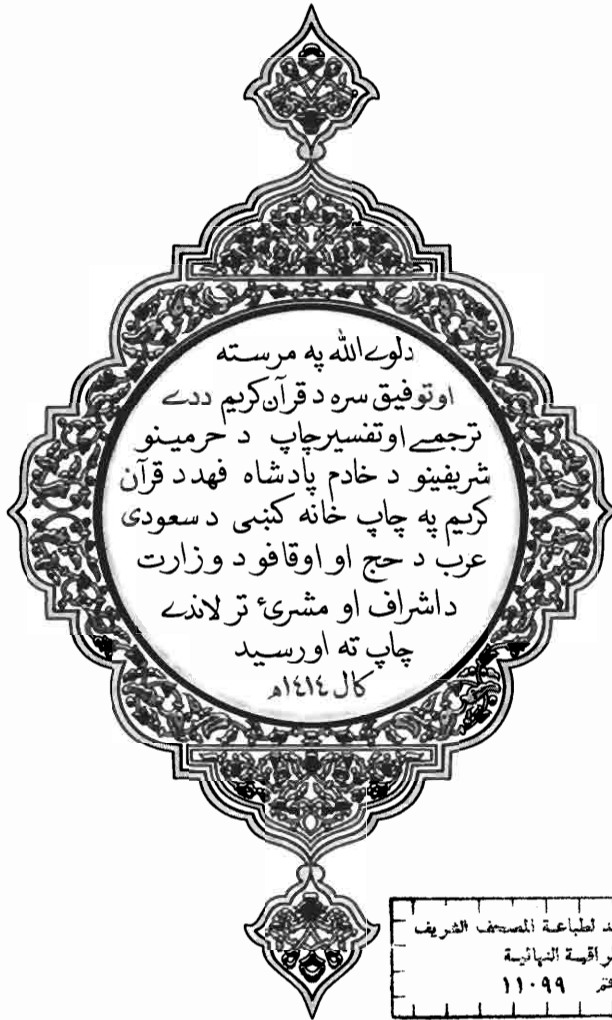 دلوے الله په مرسته
اوتوفیق سره د قرآن کریم ددے
ترجمے اوتفسیر چاپ د حرمینو
شریفینو د خادم پادشاه فهد د قرآن
کریم په چاپ خانه کښی د سعودی
عرب د حج او اوقافو د وزارت
داشراف او مشرئ تر لاندے
چاپ ته اورسید
کال ١٤١٤ه
لطباعة المصحف الشريف
النهائية
١١٠٩٩